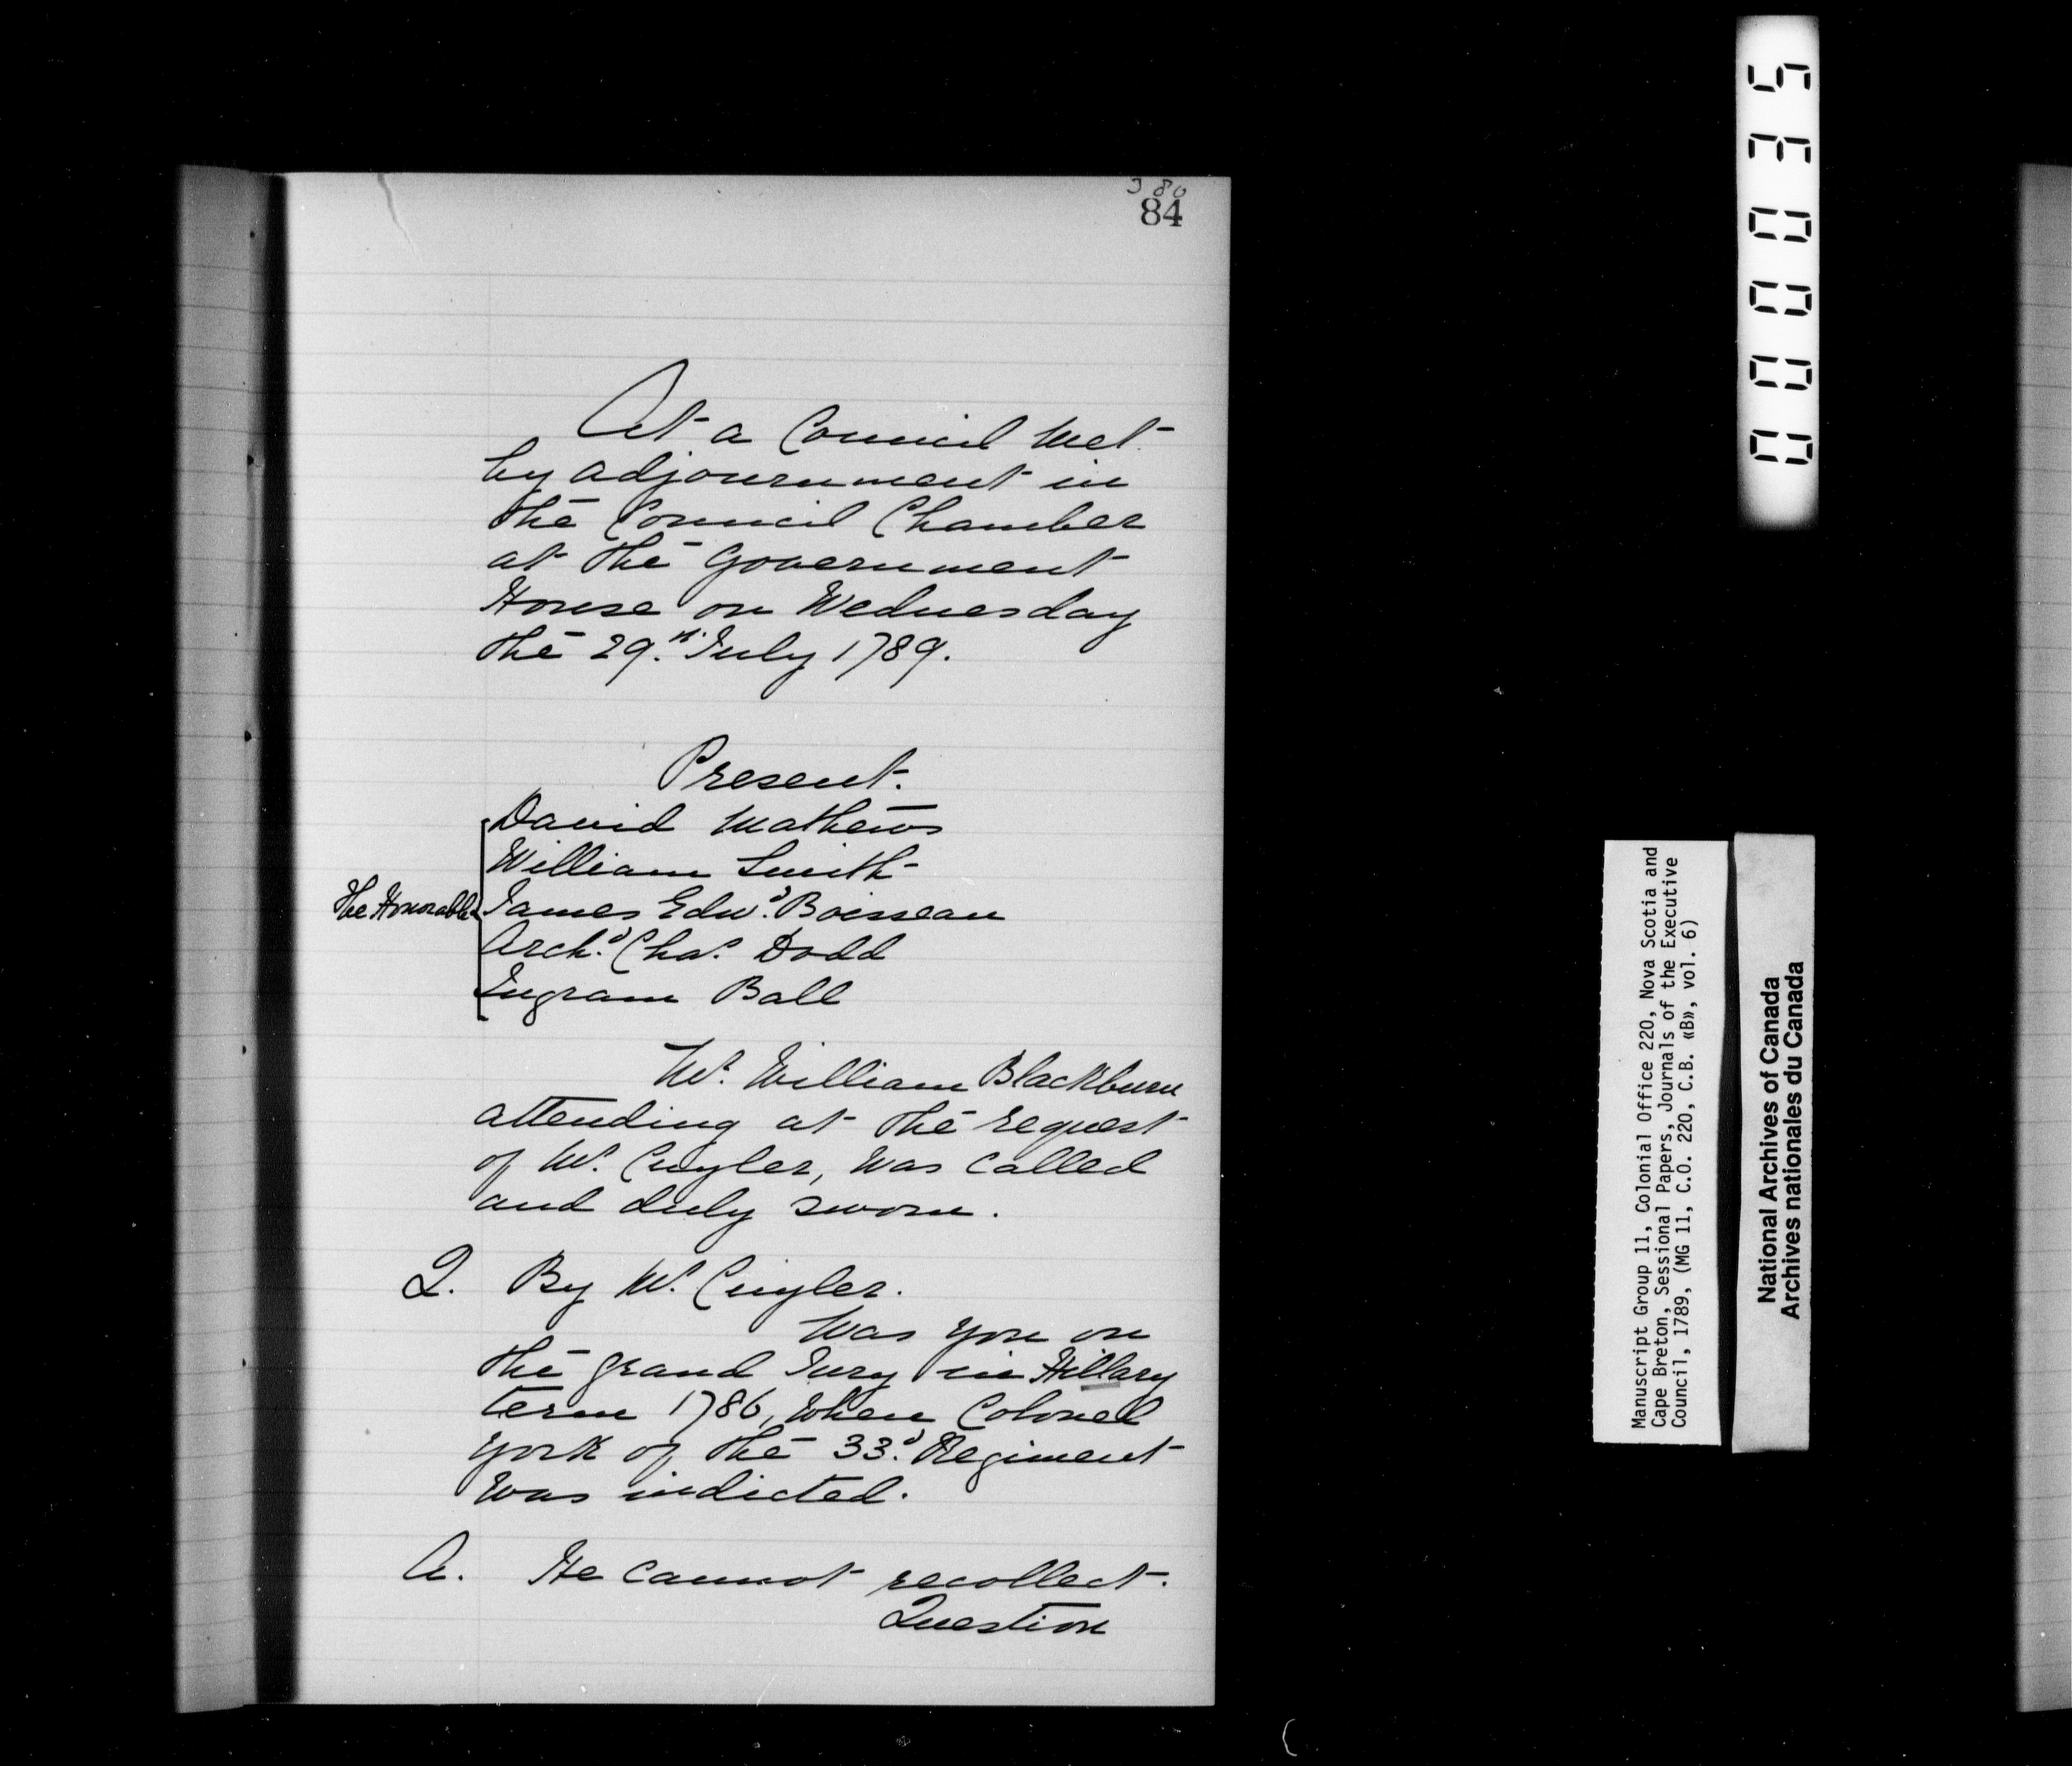 380
84
At a Council met
by adjournment in
the Council Chamber
at the Government
House on Wednesday
the 29.th July 1789.
Present.
David Mathews
William Smith
The Honorable James Edwd. Boisseau
Archd. Chas. Dodd
Ingram Ball
Mr. William Blackburn
attending at the request
of Mr. Cuyler, was called
and duly sworn.
Q. By Mr. Cuyler.
Was you on
the grand Jury in Hillary
term 1786, when Colonel
York of the 33d. Regiment
was indicted.
A. He cannot recollect.
Question
000035
Manuscript Group 11, Colonial Office 220, Nova Scotia and
Cape Breton, Sessional Papers, Journals of the Executive
Council, 1789, (MG 11, C.O. 220, C.B. «B», vol. 6)
National Archives of Canada
Archives nationales du Canada